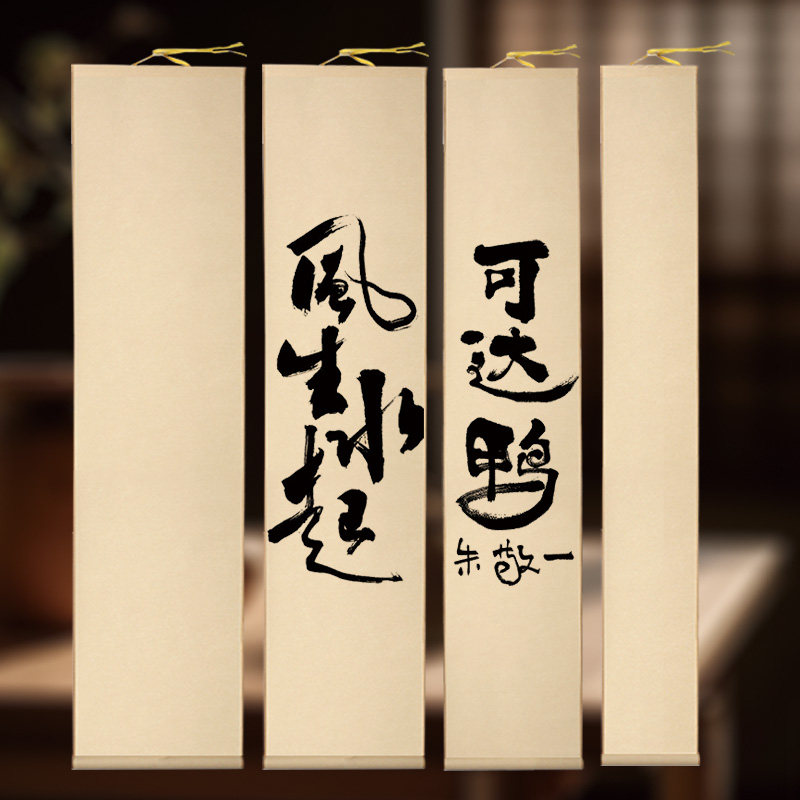 風生水起
可达鸭
朱敬一